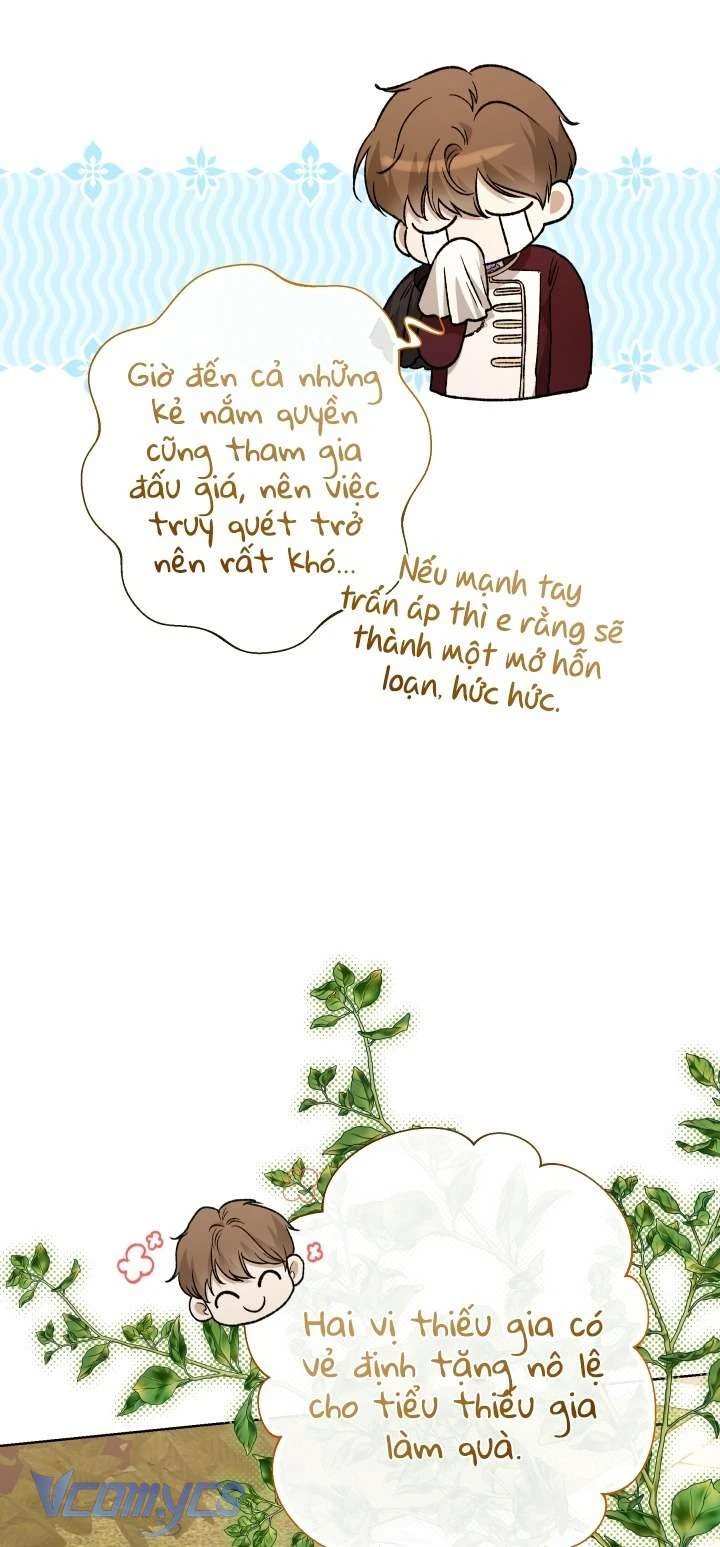 Giờ đến cả những
kẻ nắm quyền
cũng tham gia
đấu giá, nên việc
truy quét trở
nên rất khó...
Nếu mạnh tay
trấn áp thì e rằng sẽ
thành một mớ hỗn
loạn, hức hức.
Hai vị thiếu gia có
vẻ định tặng nô lệ
cho tiểu thiếu gia
làm quà.
Vcomycs